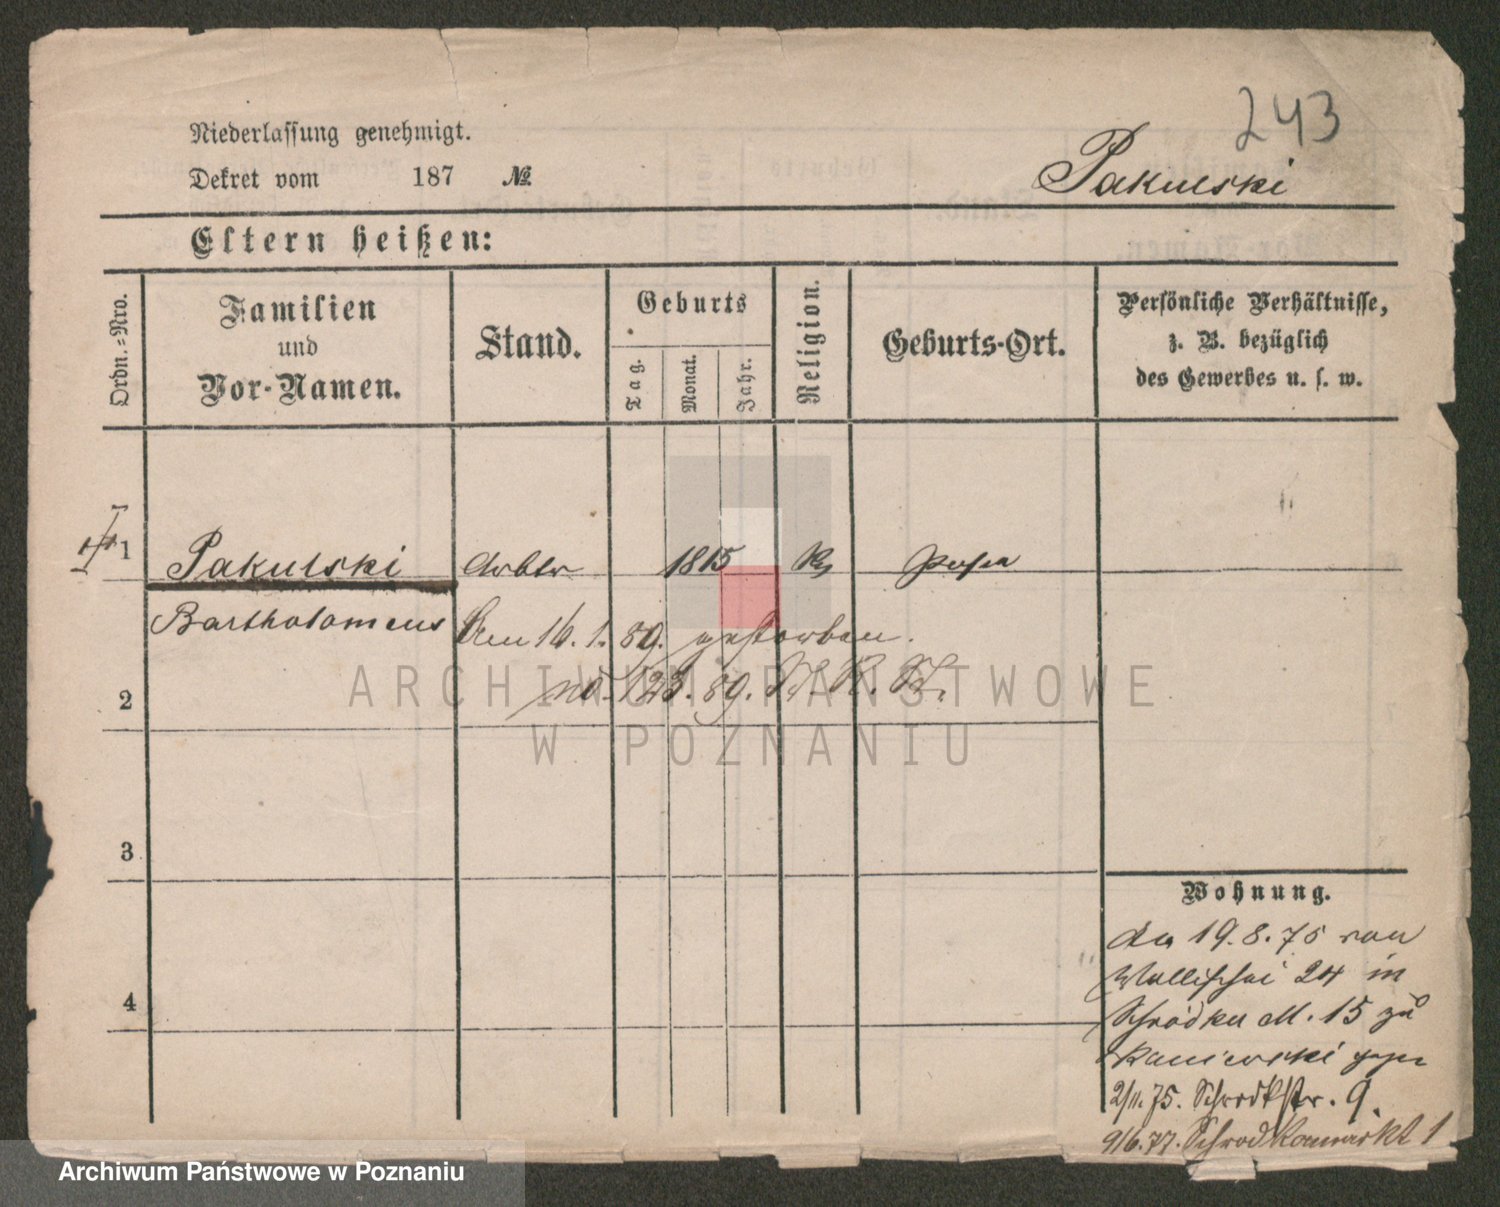 243
Niederlassung genehmigt.
Dekret vom 187 №
Pakulski
Eltern heißen:
Ordn.=Nro.
Familien
und
Vor-Namen.
Stand.
Geburts
Tag.
Monat.
Jahr.
Religion.
Geburts-Ort.
Persönliche Verhältnisse,
z. B. bezüglich
des Gewerbes u. s. w.
1 Pakulski Arbtr 1815 K Posen
Bartholomeus den 16.1.89. gestorben.
no. 123.89. St. R. St.
2
3
4
Wohnung.
19.8.75 von
Wallischei 24 in
Schrodka M. 15 zu
Kaniewski gezogen
2/11.75. Schrodkstr. 9.
9/6.77. Schrodkamarkt 1
ARCHIWUM PAŃSTWOWE
W POZNANIU
Archiwum Państwowe w Poznaniu